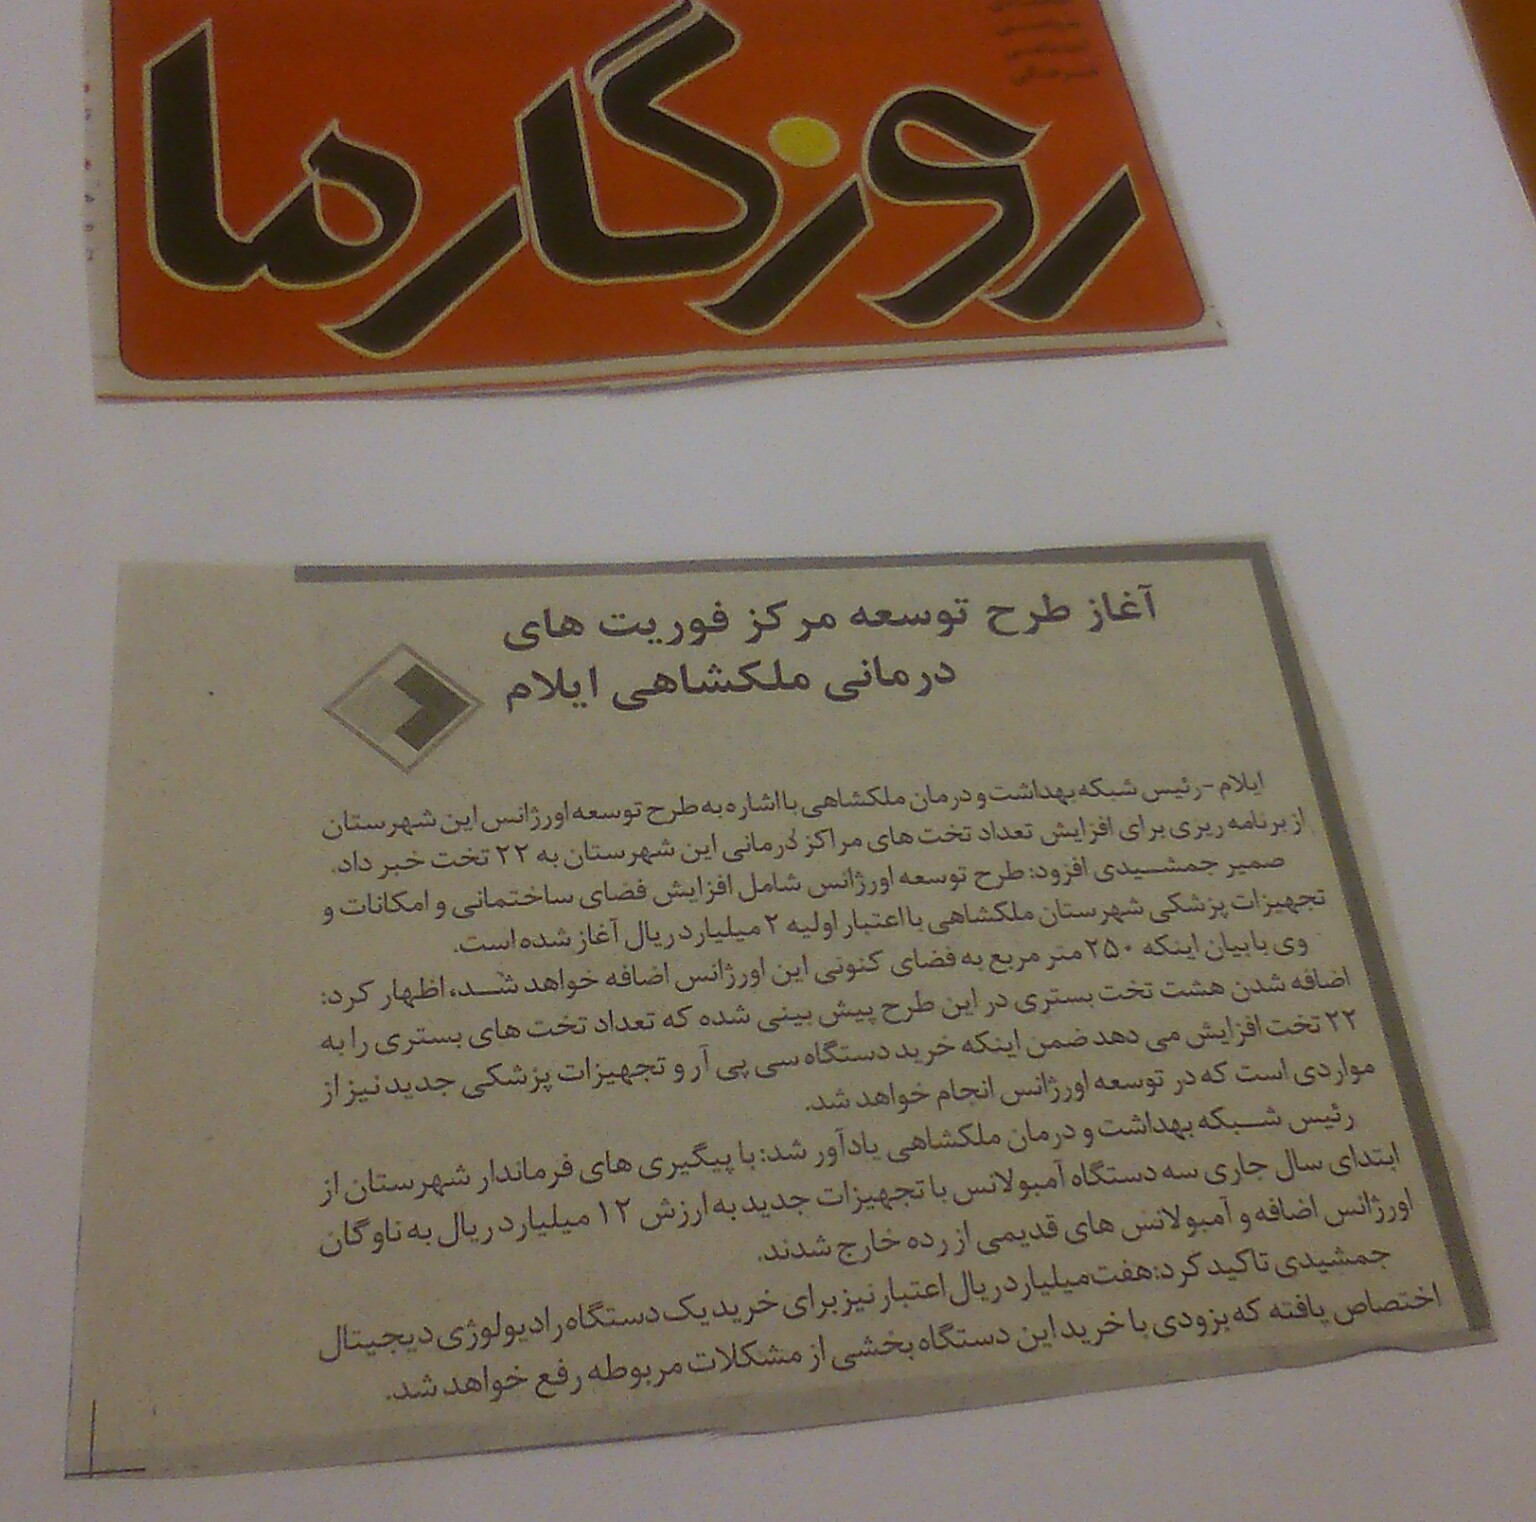 روزگار ما
آغاز طرح توسعه مرکز فوریت های
درمانی ملکشاهی ایلام
ایلام -رئیس شبکه بهداشت و درمان ملکشاهی با اشاره به طرح توسعه اورژانس این شهرستان
از برنامه ریزی برای افزایش تعداد تخت های مراکز درمانی این شهرستان به ۲۲ تخت خبر داد.
صمیر جمشیدی افزود: طرح توسعه اورژانس شامل افزایش فضای ساختمانی و امکانات و
تجهیزات پزشکی شهرستان ملکشاهی با اعتبار اولیه ۲ میلیارد ریال آغاز شده است.
وی با بیان اینکه ۲۵۰ متر مربع به فضای کنونی این اورژانس اضافه خواهد شد، اظهار کرد:
اضافه شدن هشت تخت بستری در این طرح پیش بینی شده که تعداد تخت های بستری را به
۲۲ تخت افزایش می دهد ضمن اینکه خرید دستگاه سی پی آر و تجهیزات پزشکی جدید نیز از
مواردی است که در توسعه اورژانس انجام خواهد شد.
رئیس شبکه بهداشت و درمان ملکشاهی یادآور شد: با پیگیری های فرماندار شهرستان از
ابتدای سال جاری سه دستگاه آمبولانس با تجهیزات جدید به ارزش ۱۲ میلیارد ریال به ناوگان
اورژانس اضافه و آمبولانس های قدیمی از رده خارج شدند.
جمشیدی تاکید کرد: هفت میلیارد ریال اعتبار نیز برای خرید یک دستگاه رادیولوژی دیجیتال
اختصاص یافته که بزودی با خرید این دستگاه بخشی از مشکلات مربوطه رفع خواهد شد.